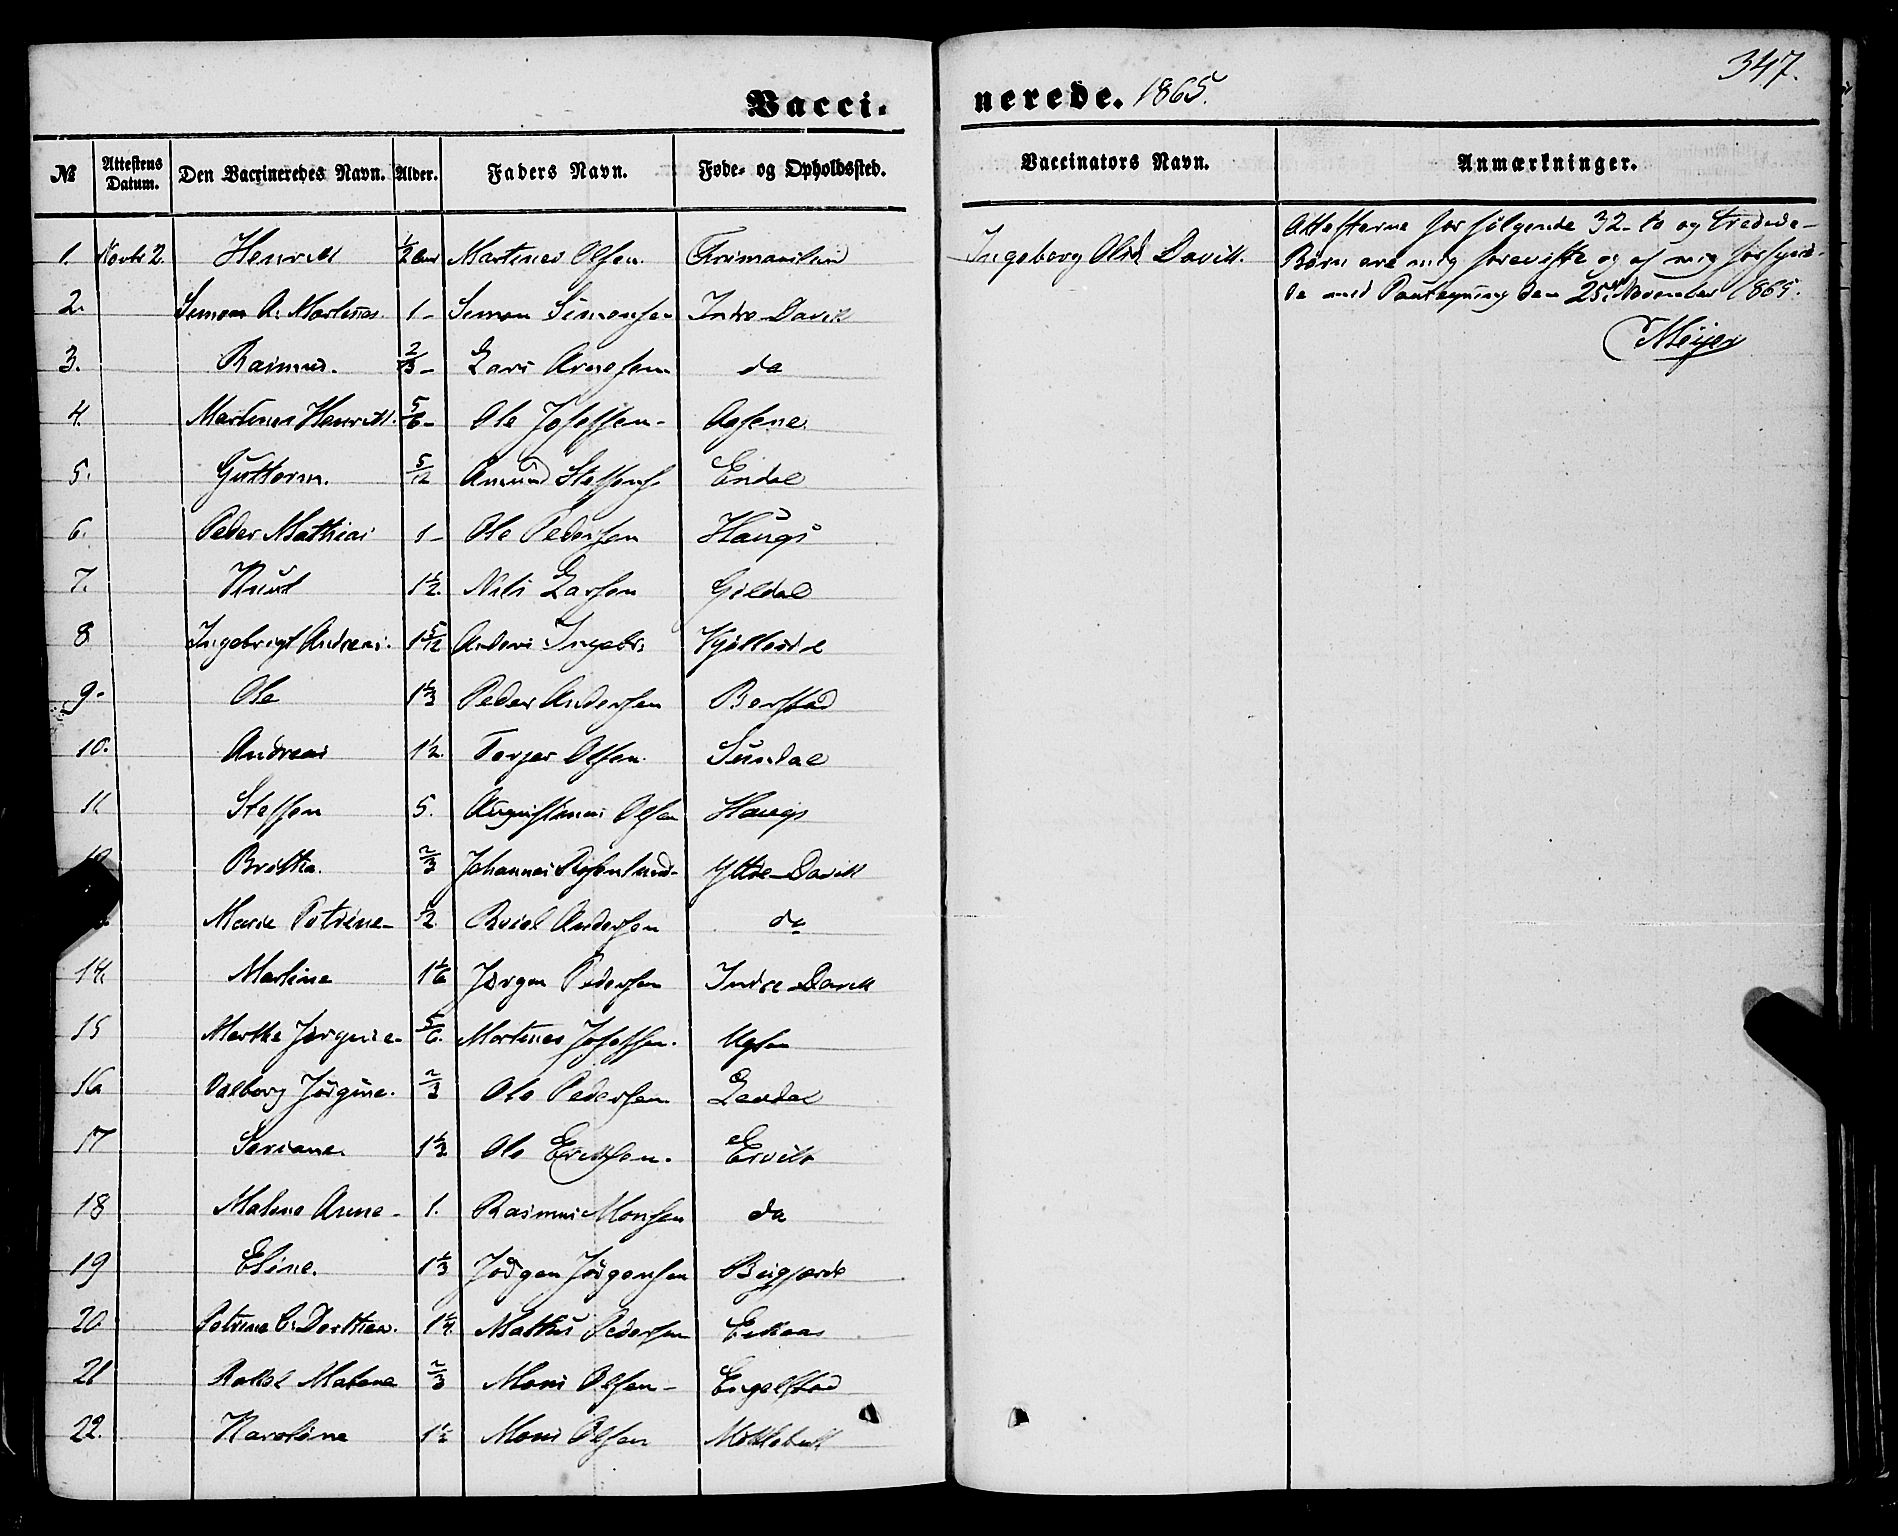 347.
Vacci-nerede. 1865.
№ Attestens Datum. Den Vaccineredes Navn. Alder. Faders Navn. Føde- og Opholdssted. Vaccinators Navn. Anmærkninger.
1. Novbr 2. Henrik ½ Aar Martinus Olsen Ingeborg Olsd. Davik.
Attesterne for følgende 32- to og tredve-
Børn ere mig foreviste og af mig forsyne-
de med Paategning den 25de November 1865.
Meijer
2. Simon A. Martinus 1- Simon Simonsen Indre Davik
3. Rasmus. 2/3- Lars Arnesen do
4. Martinus Henrik. 5/6- Ole Josefsen-
5. Guttorm. 5/12 Amund Steffens. Endal
6. Peder Mathias 1- Ole Pedersen Haugs
7. Knut 1½. Nils Larsen Gildal
8 Ingebrigt Andreas. 1 5/12 Anders Ingebr.
9. Ole 1⅓ Peder Andersen Berstad
10. Andreas 1½. Torger Olsen Sundal
11 Steffen 5. Augustinus Olsen Haugs
12 Brithe. 2/3 Johannes Ytre Davik
Marie Petrine- ½ Andersen do
14. Martine 1 1/6 Jørgen Pedersen Indre Davik
15 Marthe Jørgine- 5/6. Martinus Josefsen.
16 Valborg Jørgine. 2/3 Ole Pedersen Lendal
17 Seriane. 1½ Ole Eriksen. Ervik
18 Malene Anne- 1. Rasmus Monsen do
19 Eline. 1⅓ Jørgen Jørgensen
20 Petrine C. Dorthea. 1¼. Mathis Pedersen Eikaas
21 Malene 2/3 Mons Olsen- Engelstad
22. Karoline 1½ Mons Olsen Myklebust